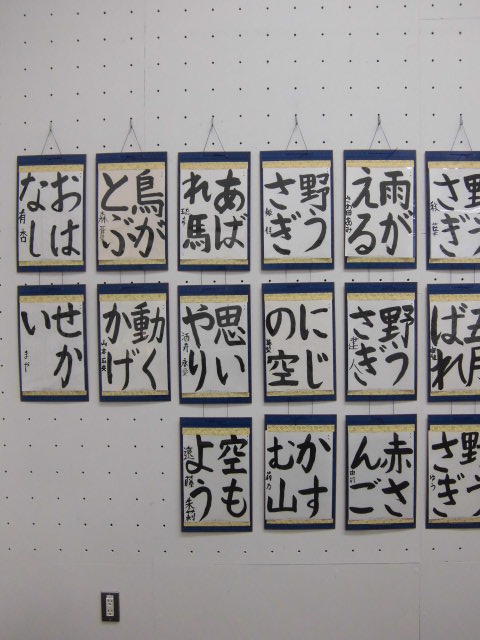 おは
なし
有杏
鳥が
とぶ
あば
れ馬
野う
さぎ
雨が
える
野う
さぎ
せか
い
まや
動く
かげ
思い
やり
にじ
の空
野う
さぎ
建人
五月
ばれ
空も
よう
遠藤 朱莉
かす
む山
赤さ
んご
野う
さぎ
ゆう